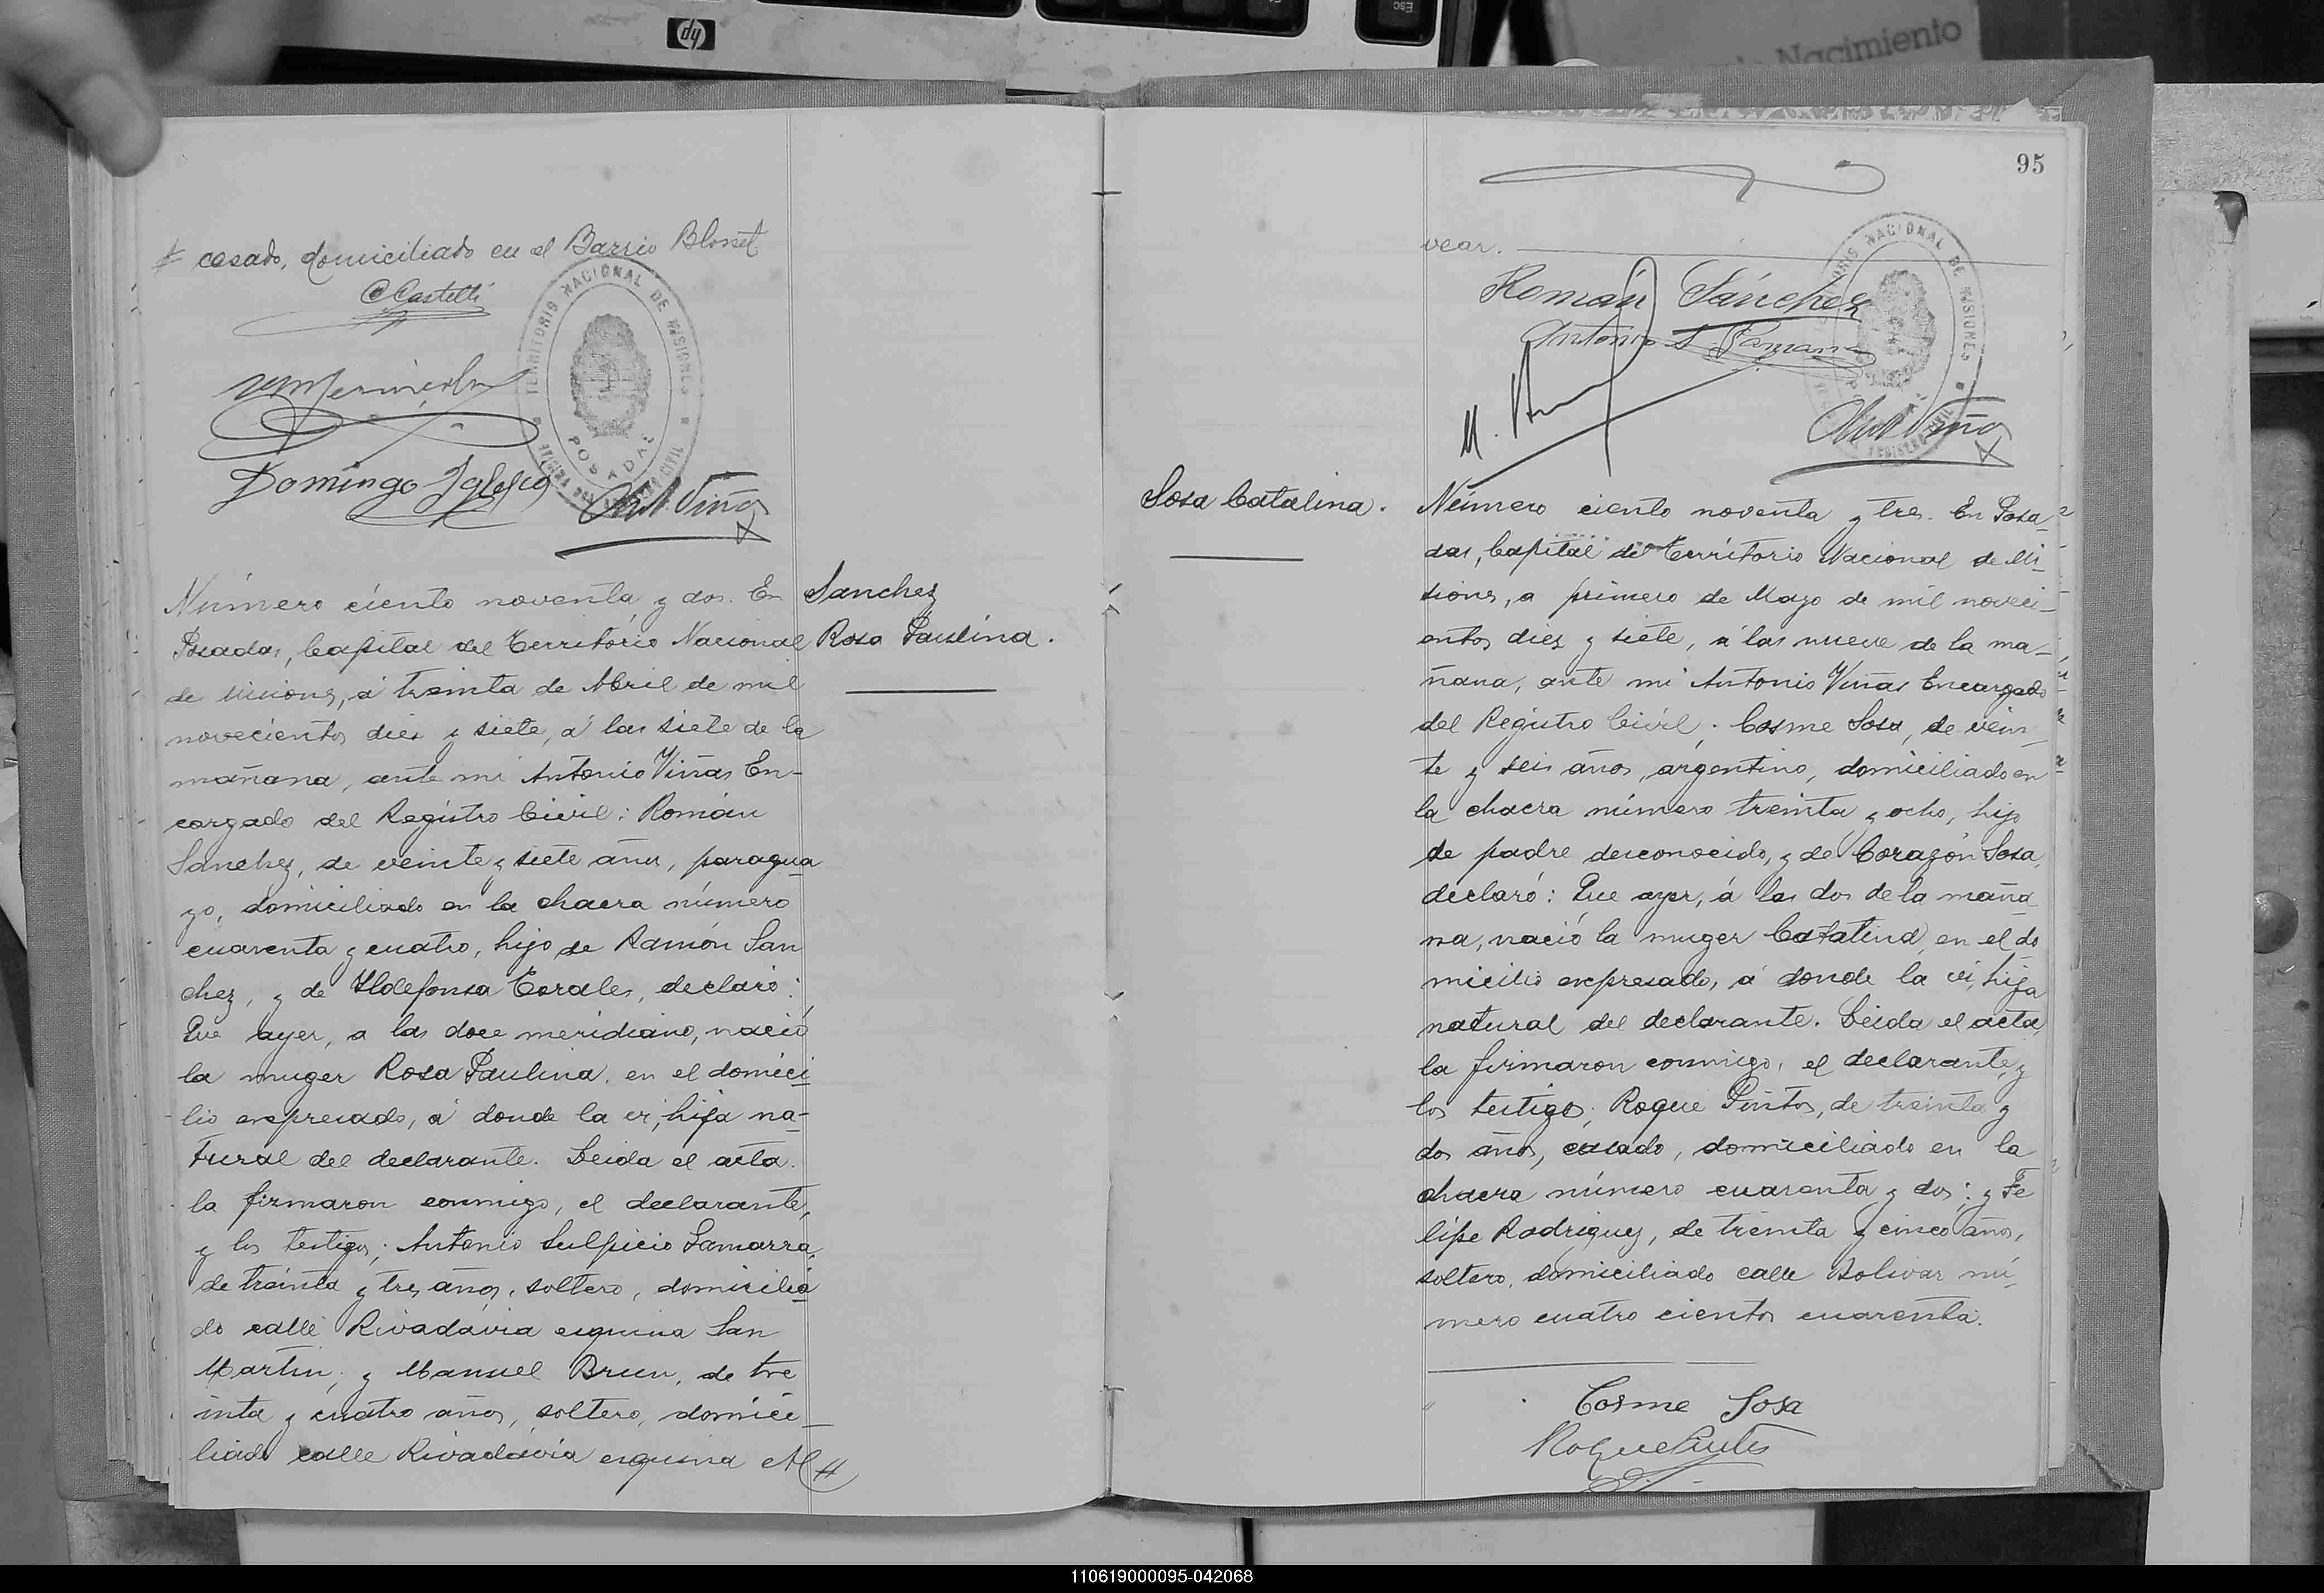 hp
ESC
Nacimiento
casado, domiciliado en el Barrio Blosset
C Castelli
TERRITORIO NACIONAL DE MISIONES
POSADAS
Domingo Iglesias
Ant. Viñas
Número ciento noventa y dos. En
Posadas, Capital del Territorio Nacional
de Misiones, á treinta de Abril de mil
novecientos diez y siete, á las siete de la
mañana, ante mi Antonio Viñas En-
cargado del Registro Civil: Román
Sanchez, de veinte y siete años, paragua
yo, domiciliado en la chacra número
cuarenta y cuatro, hijo de Ramón San
chez, y de Ildefonsa Corales, declaró:
Que ayer, a las doce meridiano, nació
la muger Rosa Paulina, en el domici
lio expresado, á donde la vi, hija na-
tural del declarante. Leida el acta.
la firmaron conmigo, el declarante,
y los testigos; Antonio Sulpicio Gamarra,
de treinta y tres años, soltero, domicilia
do calle Rivadavia esquina San
Martin; y Manuel Brun, de tre
inta y cuatro años, soltero, domici-
liado calle Rivadavia esquina Al
Sanchez
Rosa Paulina.
95
vear.
Román Sánchez
Antonio S. Gamarra
TERRITORIO NACIONAL DE MISIONES
Ant. Viñas
Sosa Catalina.
Número ciento noventa y tres. En Posa
das, Capital del Territorio Nacional de Mi
siones, a primero de Mayo de mil noveci-
entos diez y siete, á las nueve de la ma-
ñana, ante mi Antonio Viñas Encargado
del Registro Civil; Cosme Sosa, de vein
te y seis años, argentino, domiciliado en
la chacra número treinta y ocho, hijo
de padre desconocido, y de Corazón Sosa,
declaró: Que ayer, á las dos de la maña
na, nació la muger Catalina, en el do
micilio expresado, á donde la vi, hija
natural del declarante. Leida el acta,
la firmaron conmigo, el declarante, y
los testigos; Roque Pintos, de treinta y
dos años, casado, domiciliado en la
chacra número cuarenta y dos; y Fe
lipe Rodriguez, de treinta y cinco años,
soltero, domiciliado calle Bolivar nú
mero cuatro cientos cuarenta.
Cosme Sosa
Roque Pintos
110619000095-042068